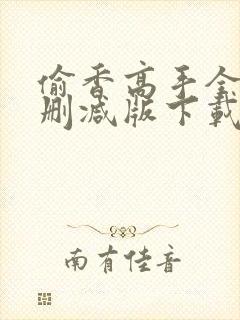 偷香高手全
删减版下载
南有佳音